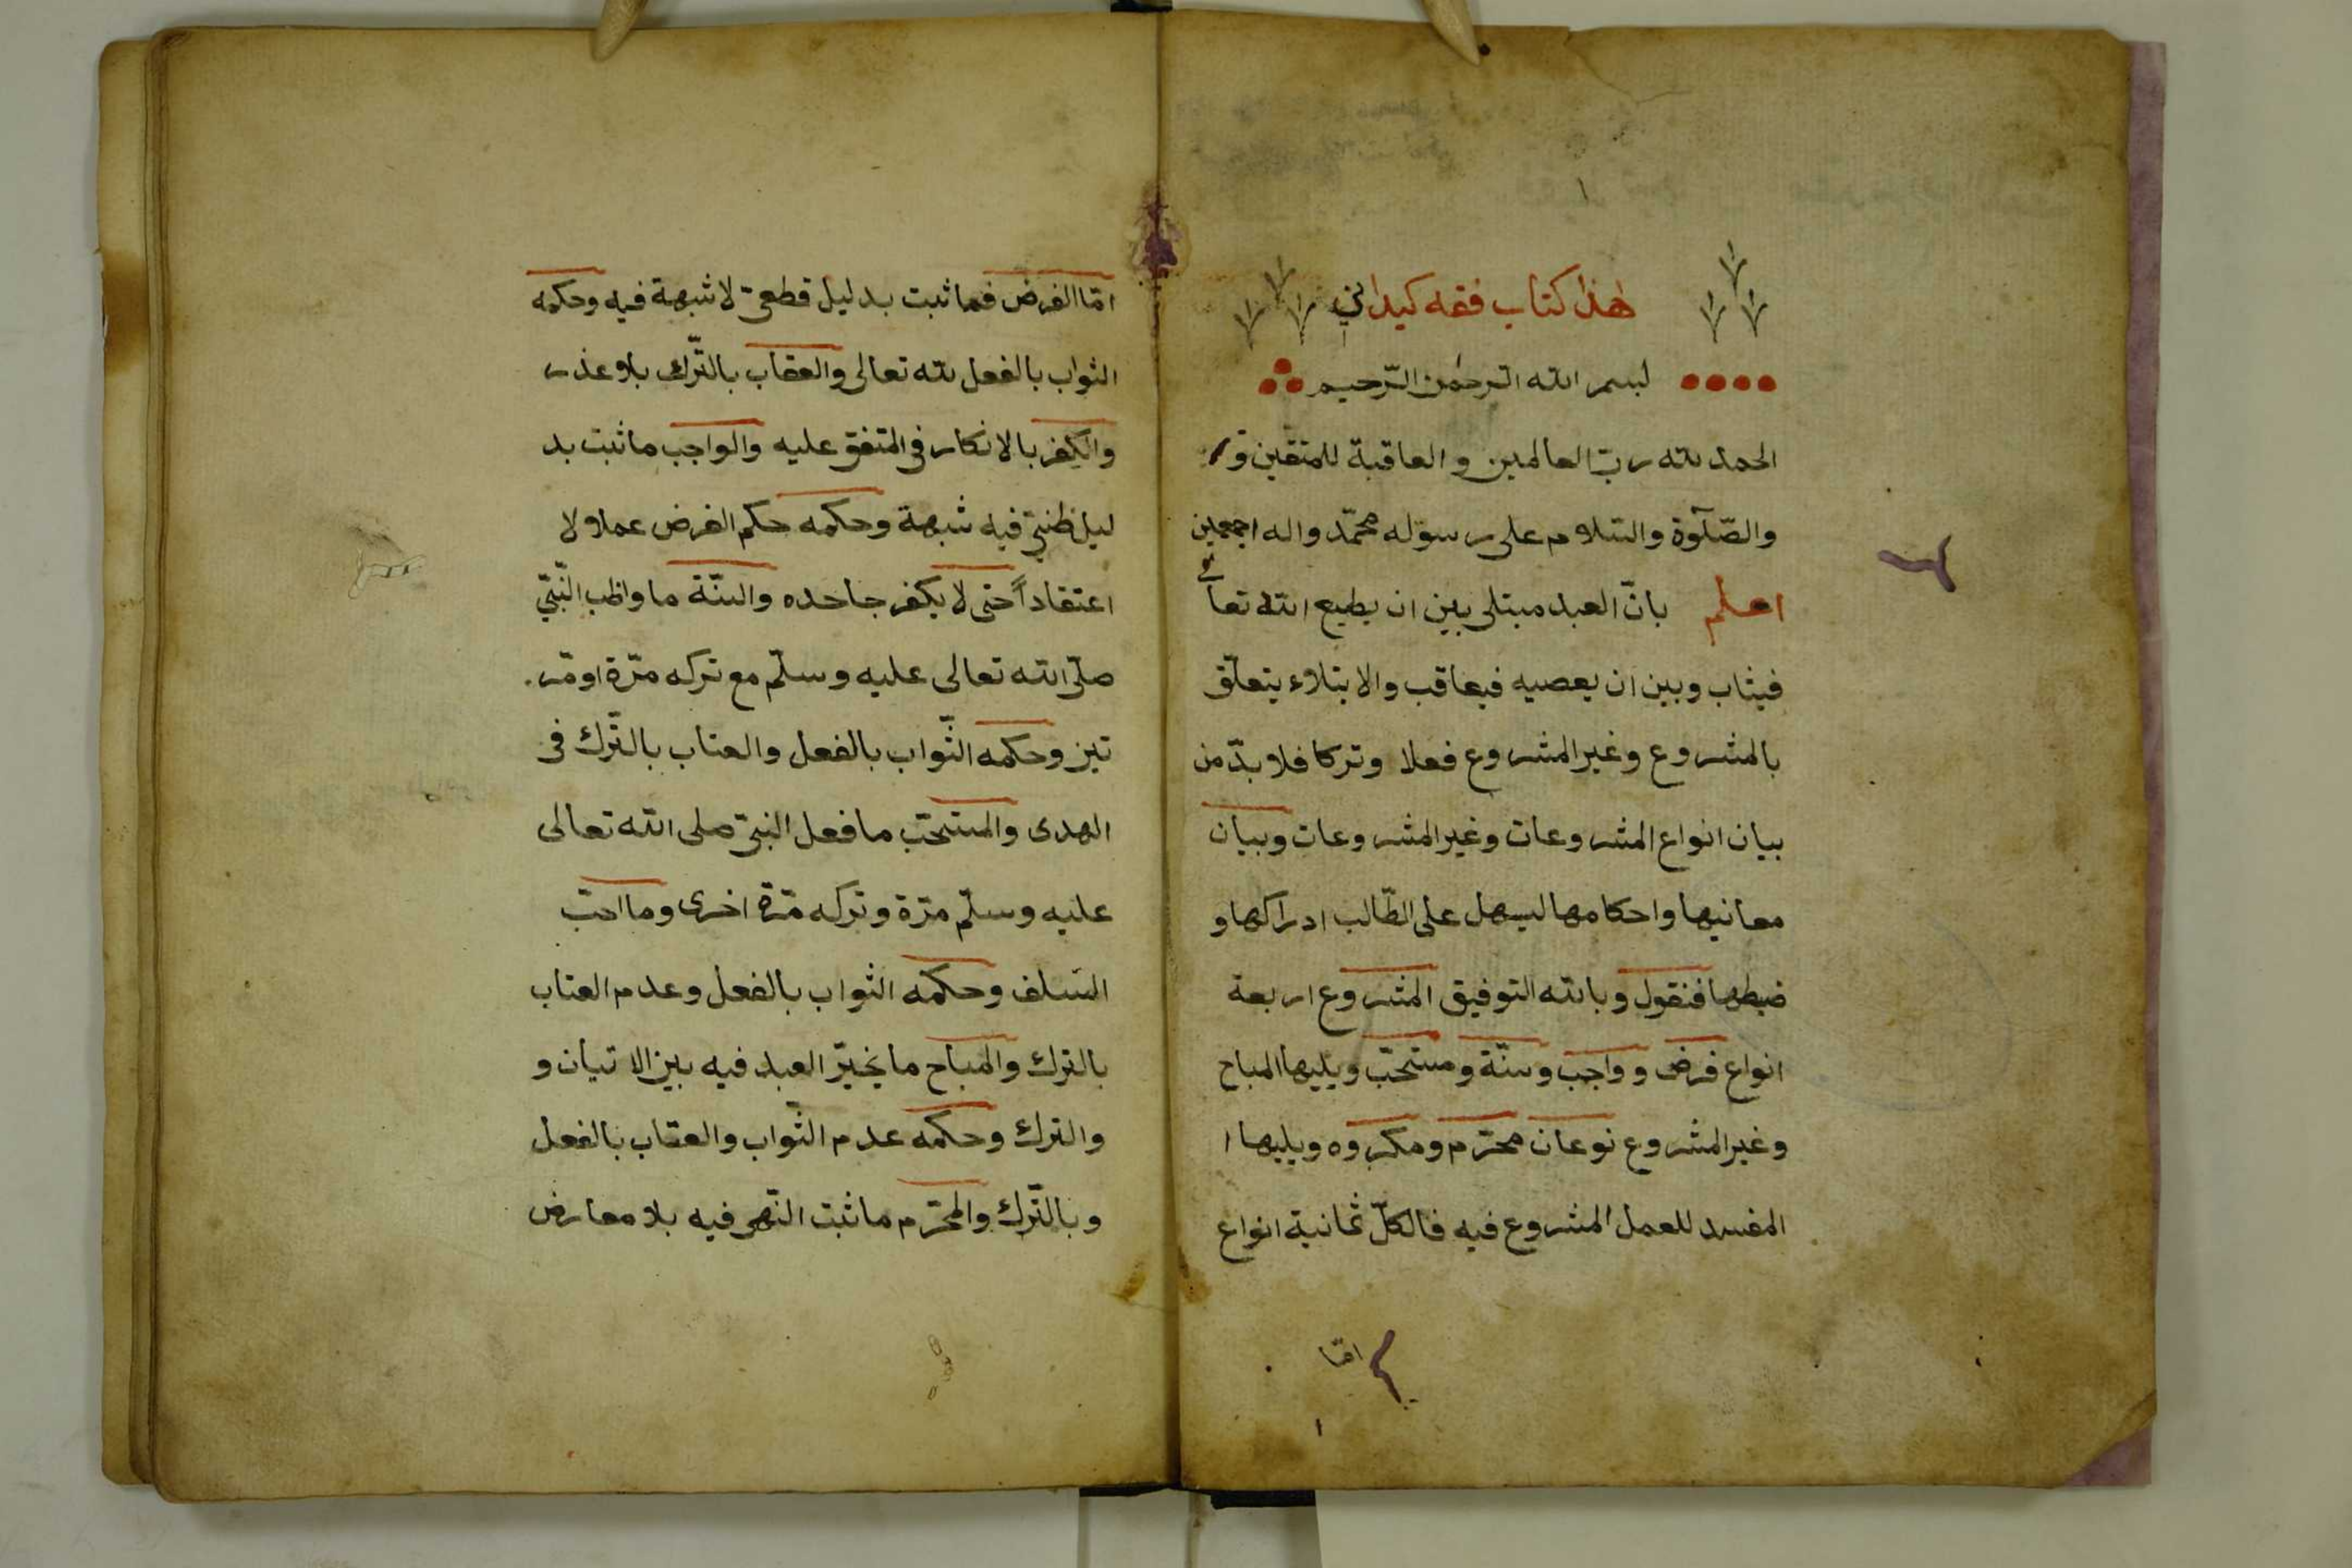 هذا كتاب فقه كيدانی
بسم الله الرحمن الرّحيم
الحمد لله ربّ العالمين و العاقبة للمتقين
والصّلوة والسّلام على رسوله محمّد واله اجمعين
اعلم بانّ العبد مبتلى بين ان يطيع الله تعالى
فيثاب وبين ان يعصيه فيعاقب والابتلاء يتعلّق
بالمشروع وغير المشروع فعلا وتركا فلا بدّ من
بيان انواع المشروعات وغير المشروعات وبيان
معانيها واحكامها ليسهل على الطّالب ادراكها و
ضبطها فنقول وبالله التوفيق المشروع اربعة
انواع فرض و واجب وسنّة ومستحبّ ويليها المباح
وغير المشروع نوعان محرّم ومكروه ويليها ا
المفسد للعمل المشروع فيه فالكلّ ثمانية انواع
امّا
امّا الفرض فما ثبت بدليل قطعىّ لا شبهة فيه وحكمه
الثواب بالفعل لله تعالى والعقاب بالتّرك بلا عذر
والكفر بالانكار فى المتفق عليه والواجب ما ثبت بد
ليل ظنىّ فيه شبهة وحكمه حكم الفرض عملا ولا
اعتقاداً حتى لا يكفر جاحده والسّنّة ما واظب النّبىّ
صلّى الله تعالى عليه وسلّم مع تركه مرّة او مرّ
تين وحكمه الثّواب بالفعل والعتاب بالتّرك فى
الهدى والمستحبّ ما فعل النبىّ صلى الله تعالى
عليه وسلّم مرّة وتركه مرّة اخرى وما احبّ
السّلف وحكمه الثواب بالفعل وعدم العتاب
بالترك والمباح ما يخيّر العبد فيه بين الاتيان و
والترك وحكمه عدم الثّواب والعقاب بالفعل
وبالتّرك والمحرّم ما ثبت النّهى فيه بلا معارض